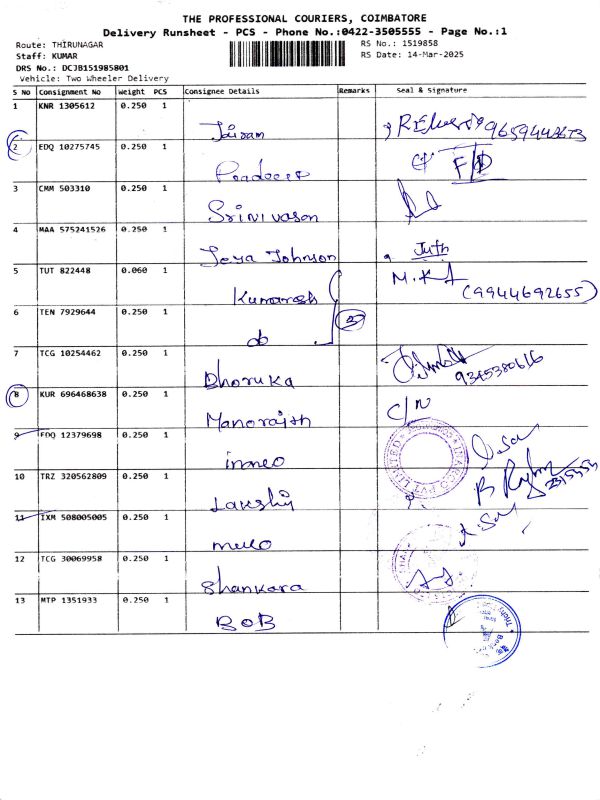 THE PROFESSIONAL COURIERS, COIMBATORE
Delivery Runsheet - PCS - Phone No.:0422-3505555 - Page No.:1
Route: THIRUNAGAR RS No.: 1519858
Staff: KUMAR RS Date: 14-Mar-2025
DRS No.: DCJB151985801
Vehicle: Two Wheeler Delivery
S No Consignment No Weight PCS Consignee Details Remarks Seal & Signature
1 KNR 1305612 0.250 1
Jairam 9659443673
2 EDQ 10275745 0.250 1
Pradeep
3 CMM 503310 0.250 1
Srinivason
4 MAA 575241526 0.250 1
Jeya Johnson Juth
5 TUT 822448 0.060 1 M.K
Kumaresh (9944692655)
6 TEN 7929644 0.250 1
do
7 TCG 10254462 0.250 1
Dhoruka 9345380616
8 KUR 696468638 0.250 1 C/N
Manorajth
9 EDQ 12379698 0.250 1
inneo
10 TRZ 320562809 0.250 1
Lakshy
11 IXM 508005005 0.250 1
12 TCG 30069958 0.250 1
Shankara
13 MTP 1351933 0.250 1
BOB